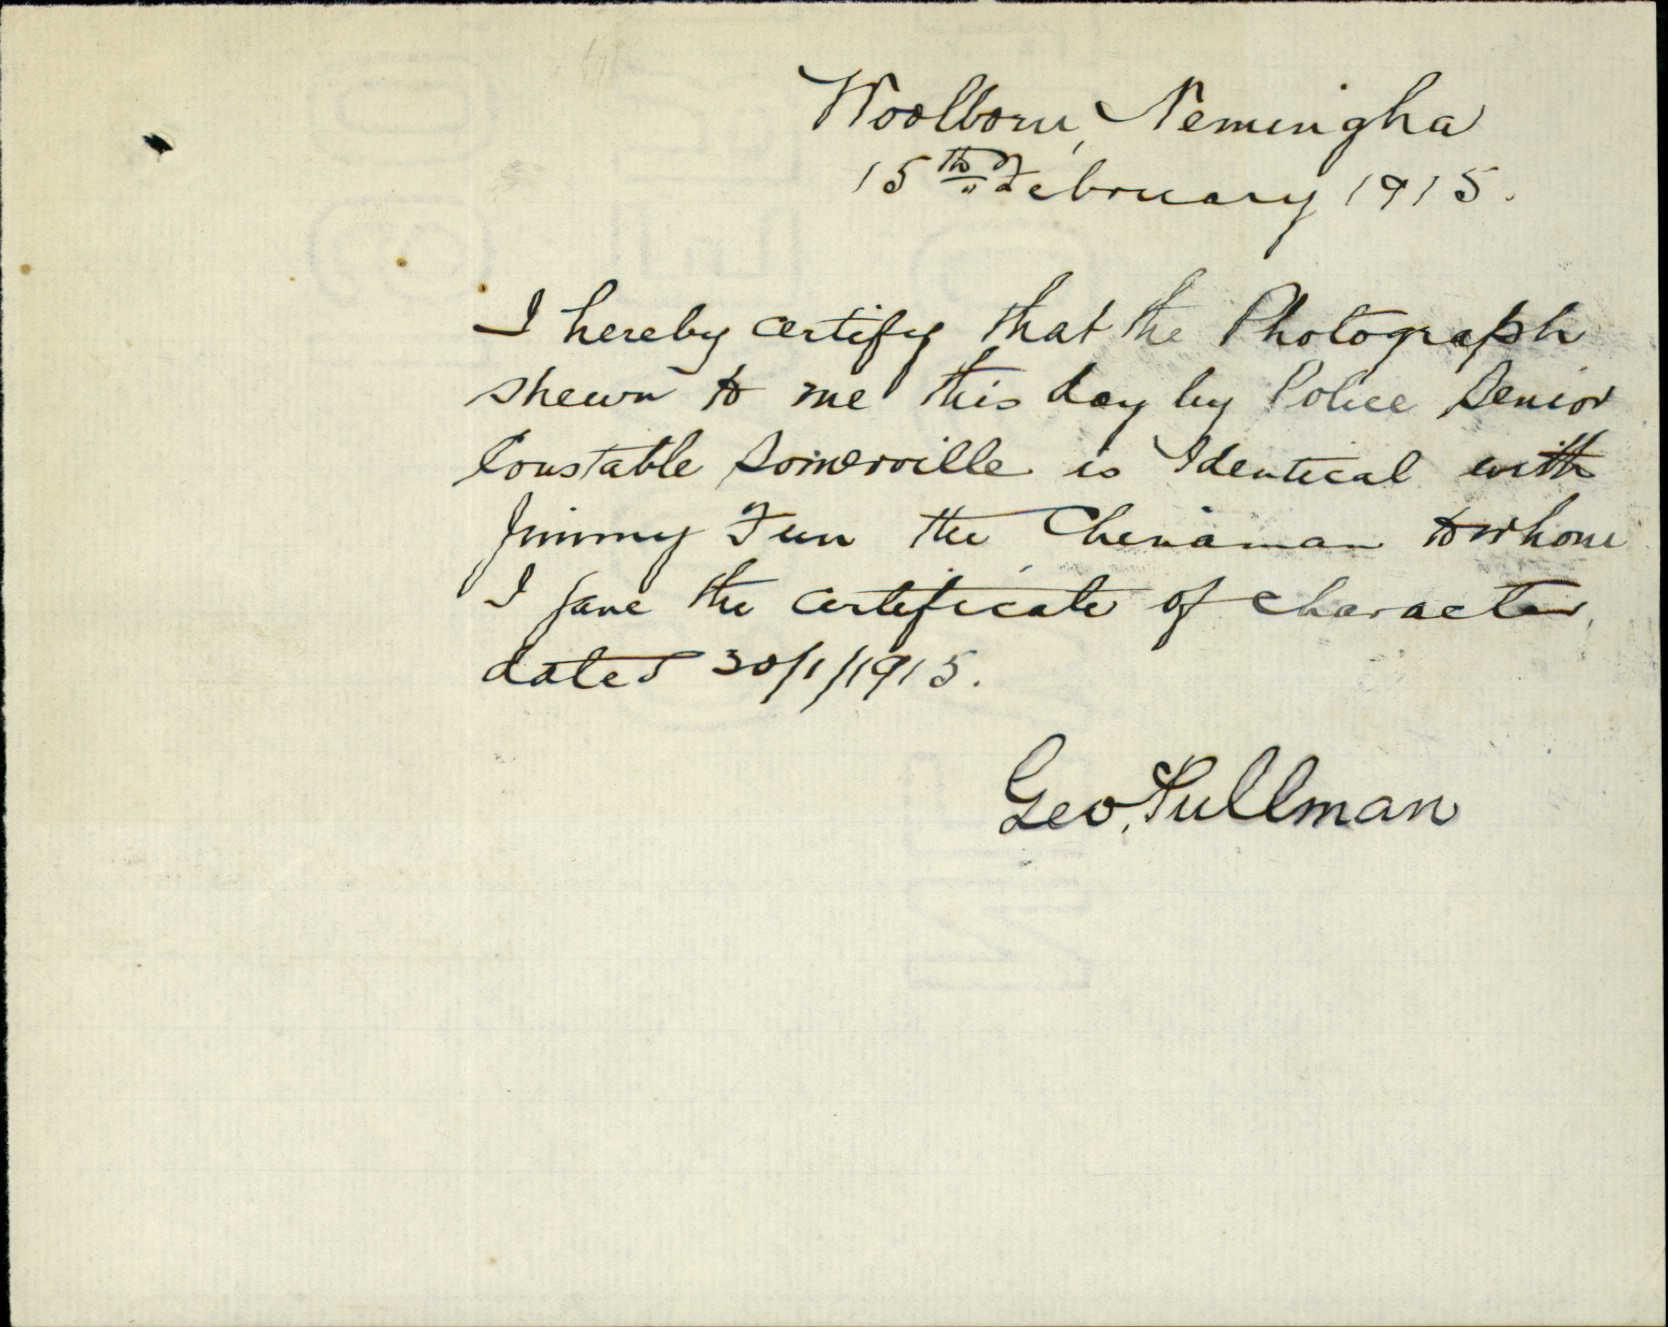 Woolborn, Nemingha
15th February 1915.
I hereby certify that the Photograph
shewn to me this day by Police Senior
Constable Somerville is Identical with
Jimmy Fun the Chinaman to whom
I gave the certificate of character,
dated 30/1/1915.
Geo. Pullman